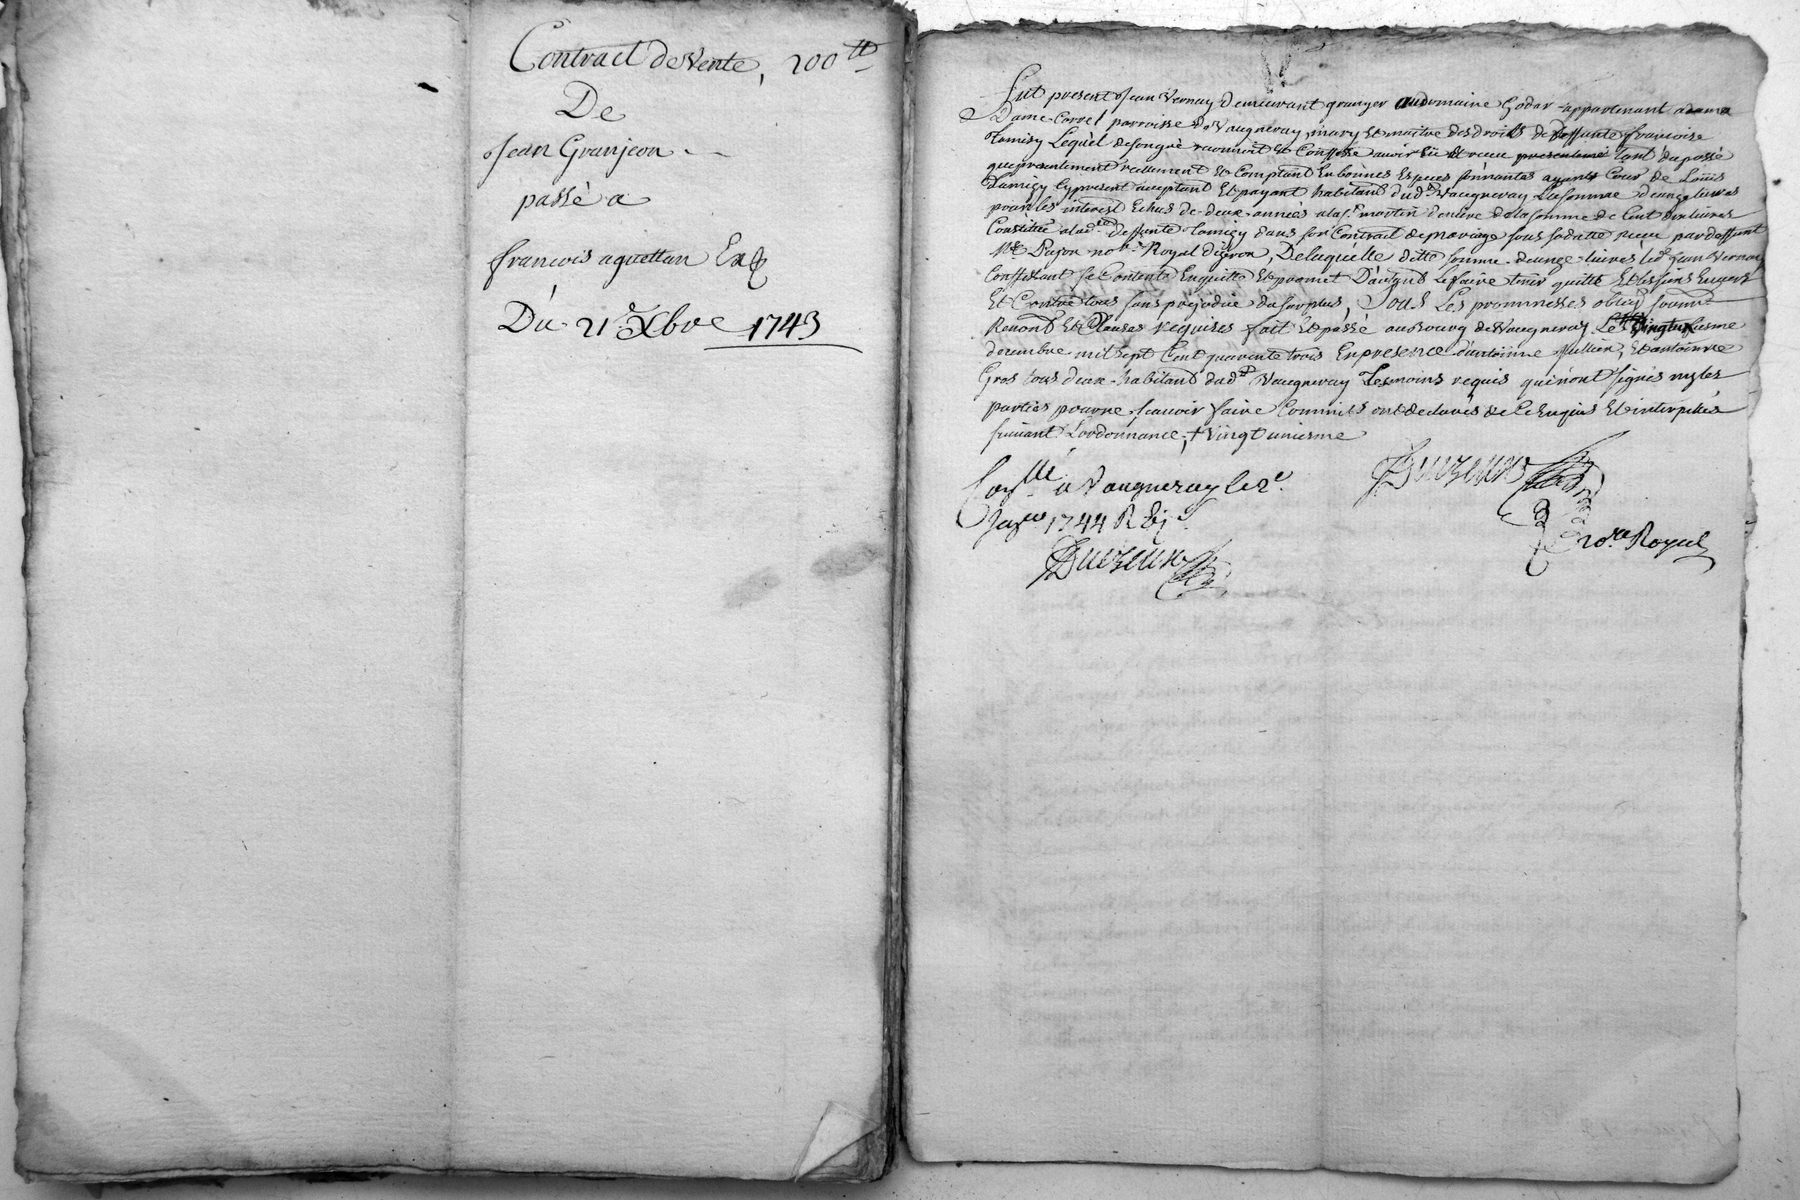 Contract de Vente, 200 tt
De
Jean Granjeon
passé a
francois aguettan Exp
Du 21e Xbre 1743
Fut present Jean Vernay demeurant granger audomaine Godar appartenant adame
Dame parroisse de Vaugneray, mary et maitre des droits de deffunte francoise
Lequel desongré reconnoit et Confesse avoir eü et receu presentemt tant du passé
que presentement réellement et Comptant en bonnes Especes sonnantes ayants Cour de Loüis
cy present acceptant Et payant habitant dud Vaugneray La somme d'onze livres
pour les interest Echus de deux années ala st martin derniere de la somme de Cent dix livres
Constituée alad. deffunte dans son Contract de mariage sous sa datte receu par deffunt
Me nore Royal De laquelle ditte somme d'onze livres led Jean Vernay
Confessant se Contente En quitte Et promet D'autzuis Le faire tenir quitte Et les siens Envers
Et Contre tous sans prejudice du surplus, Sous Les prommesses oblig soumn
Renond Et Clauses requises fait Et passé au Bourg de Vaugneray Le vingtunieme
decembre mil sept Cent quarente trois En presence d'antoinne Jullien, Et antoinne
Gros tous deux habitand dud Vaugneray Temoins requis qui n'ont signés ny les
parties pour ne scavoir faire Commils ont declarés de ce Enquis Et interpellés
suivant Lordonnance, + vingt unieme
Conllé a Vaugneray le 2e
Janer 1744 R
nore Royal